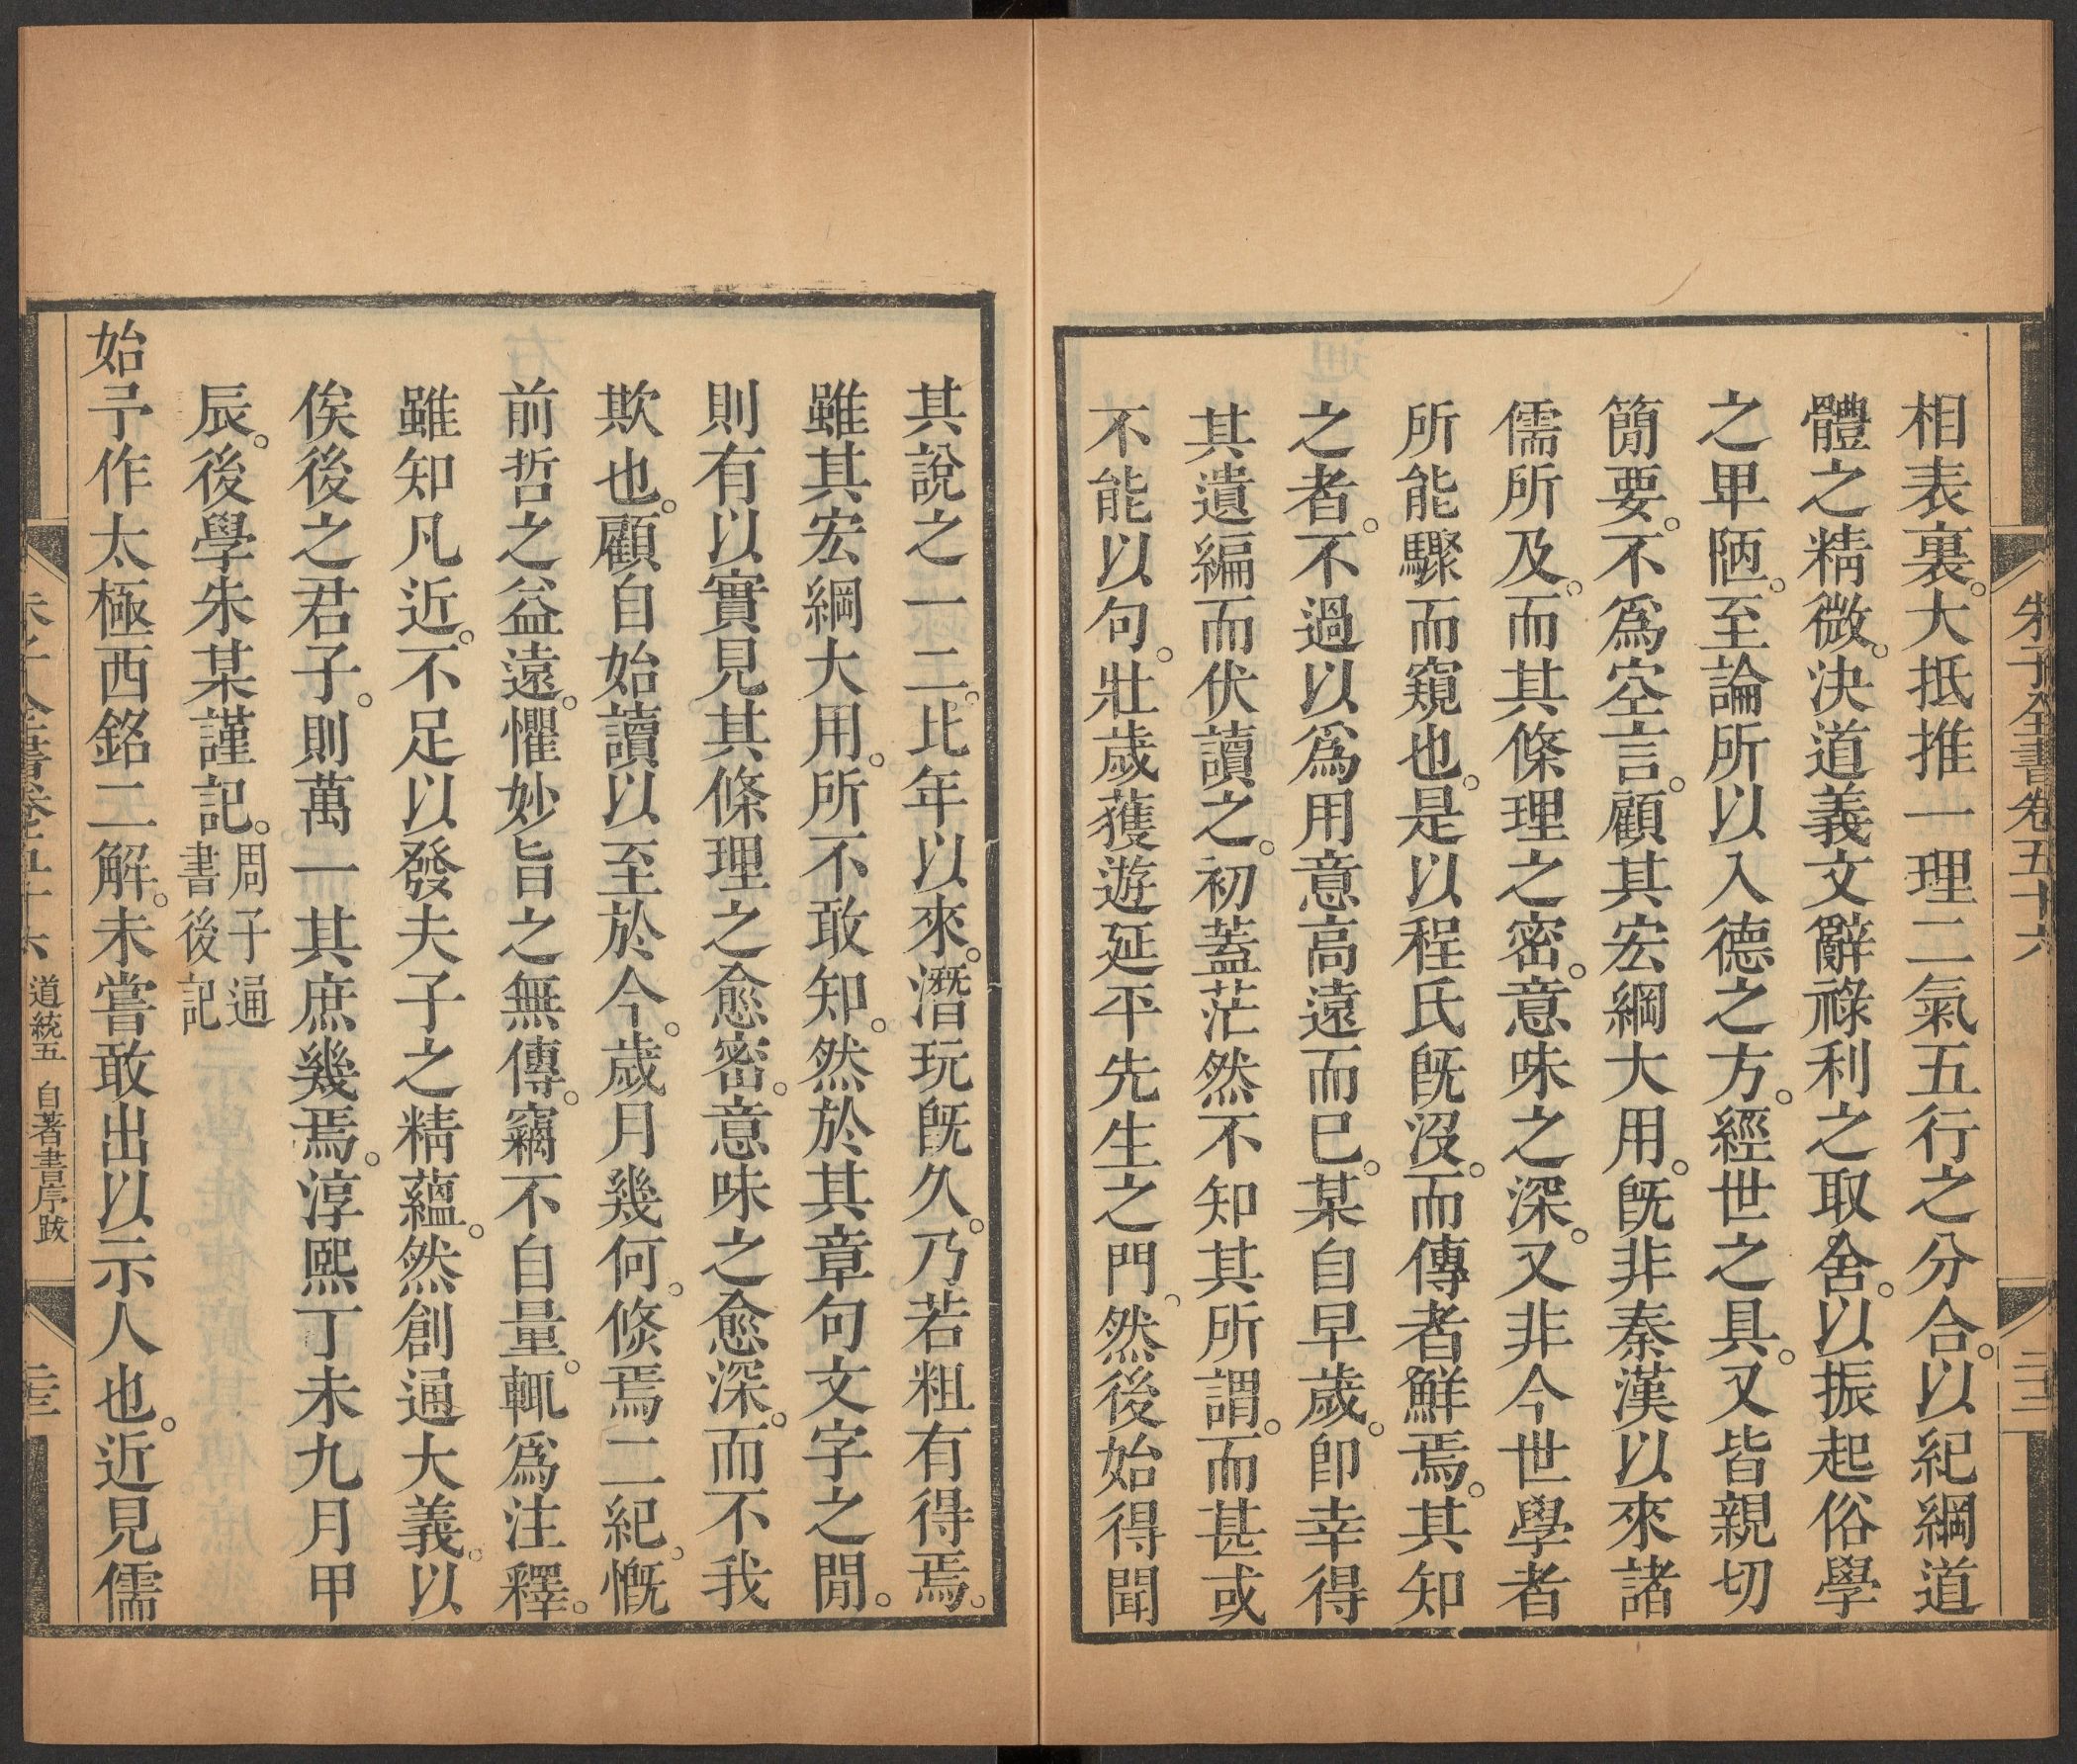 朱子全書卷五十六
二十二
相表裏。大抵推一理二氣五行之分合。以紀綱道
體之精微。決道義文辭祿利之取舍。以振起俗學
之卑陋。至論所以入德之方。經世之具。又皆親切
簡要。不爲空言。顧其宏綱大用。旣非秦漢以來諸
儒所及。而其條理之密。意味之深。又非今世學者
所能驟而窺也。是以程氏旣沒。而傳者鮮焉。其知
之者。不過以爲用意高遠而已。某自早歲。卽幸得
其遺編而伏讀之。初蓋茫然不知其所謂。而甚或
不能以句。壯歲獲遊延平先生之門。然後始得聞
其說之一二。比年以來。潛玩旣久。乃若粗有得焉。
雖其宏綱大用。所不敢知。然於其章句文字之閒。
則有以實見其條理之愈密。意味之愈深。而不我
欺也。顧自始讀以至於今。歲月幾何。倐焉二紀。慨
前哲之益遠。懼妙旨之無傳。竊不自量。輒爲注釋。
雖知凡近。不足以發夫子之精蘊。然創通大義。以
俟後之君子。則萬一其庶幾焉。淳熙丁未九月甲
辰。後學朱某謹記。周子通
書後記
始予作太極西銘二解。未嘗敢出以示人也。近見儒
朱子全書卷五十六 道統五 自著書序跋
二十三